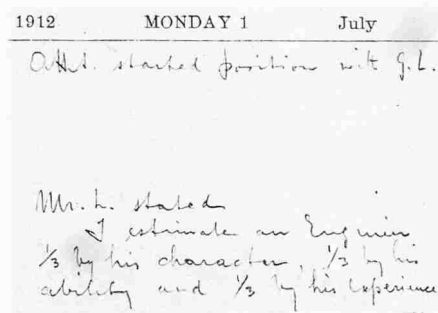 1912 MONDAY 1 July
started position with G.L.
Mr. L. stated
I estimate an Engineer
1/3 by his character, 1/3 by his
ability and 1/3 by his Experience